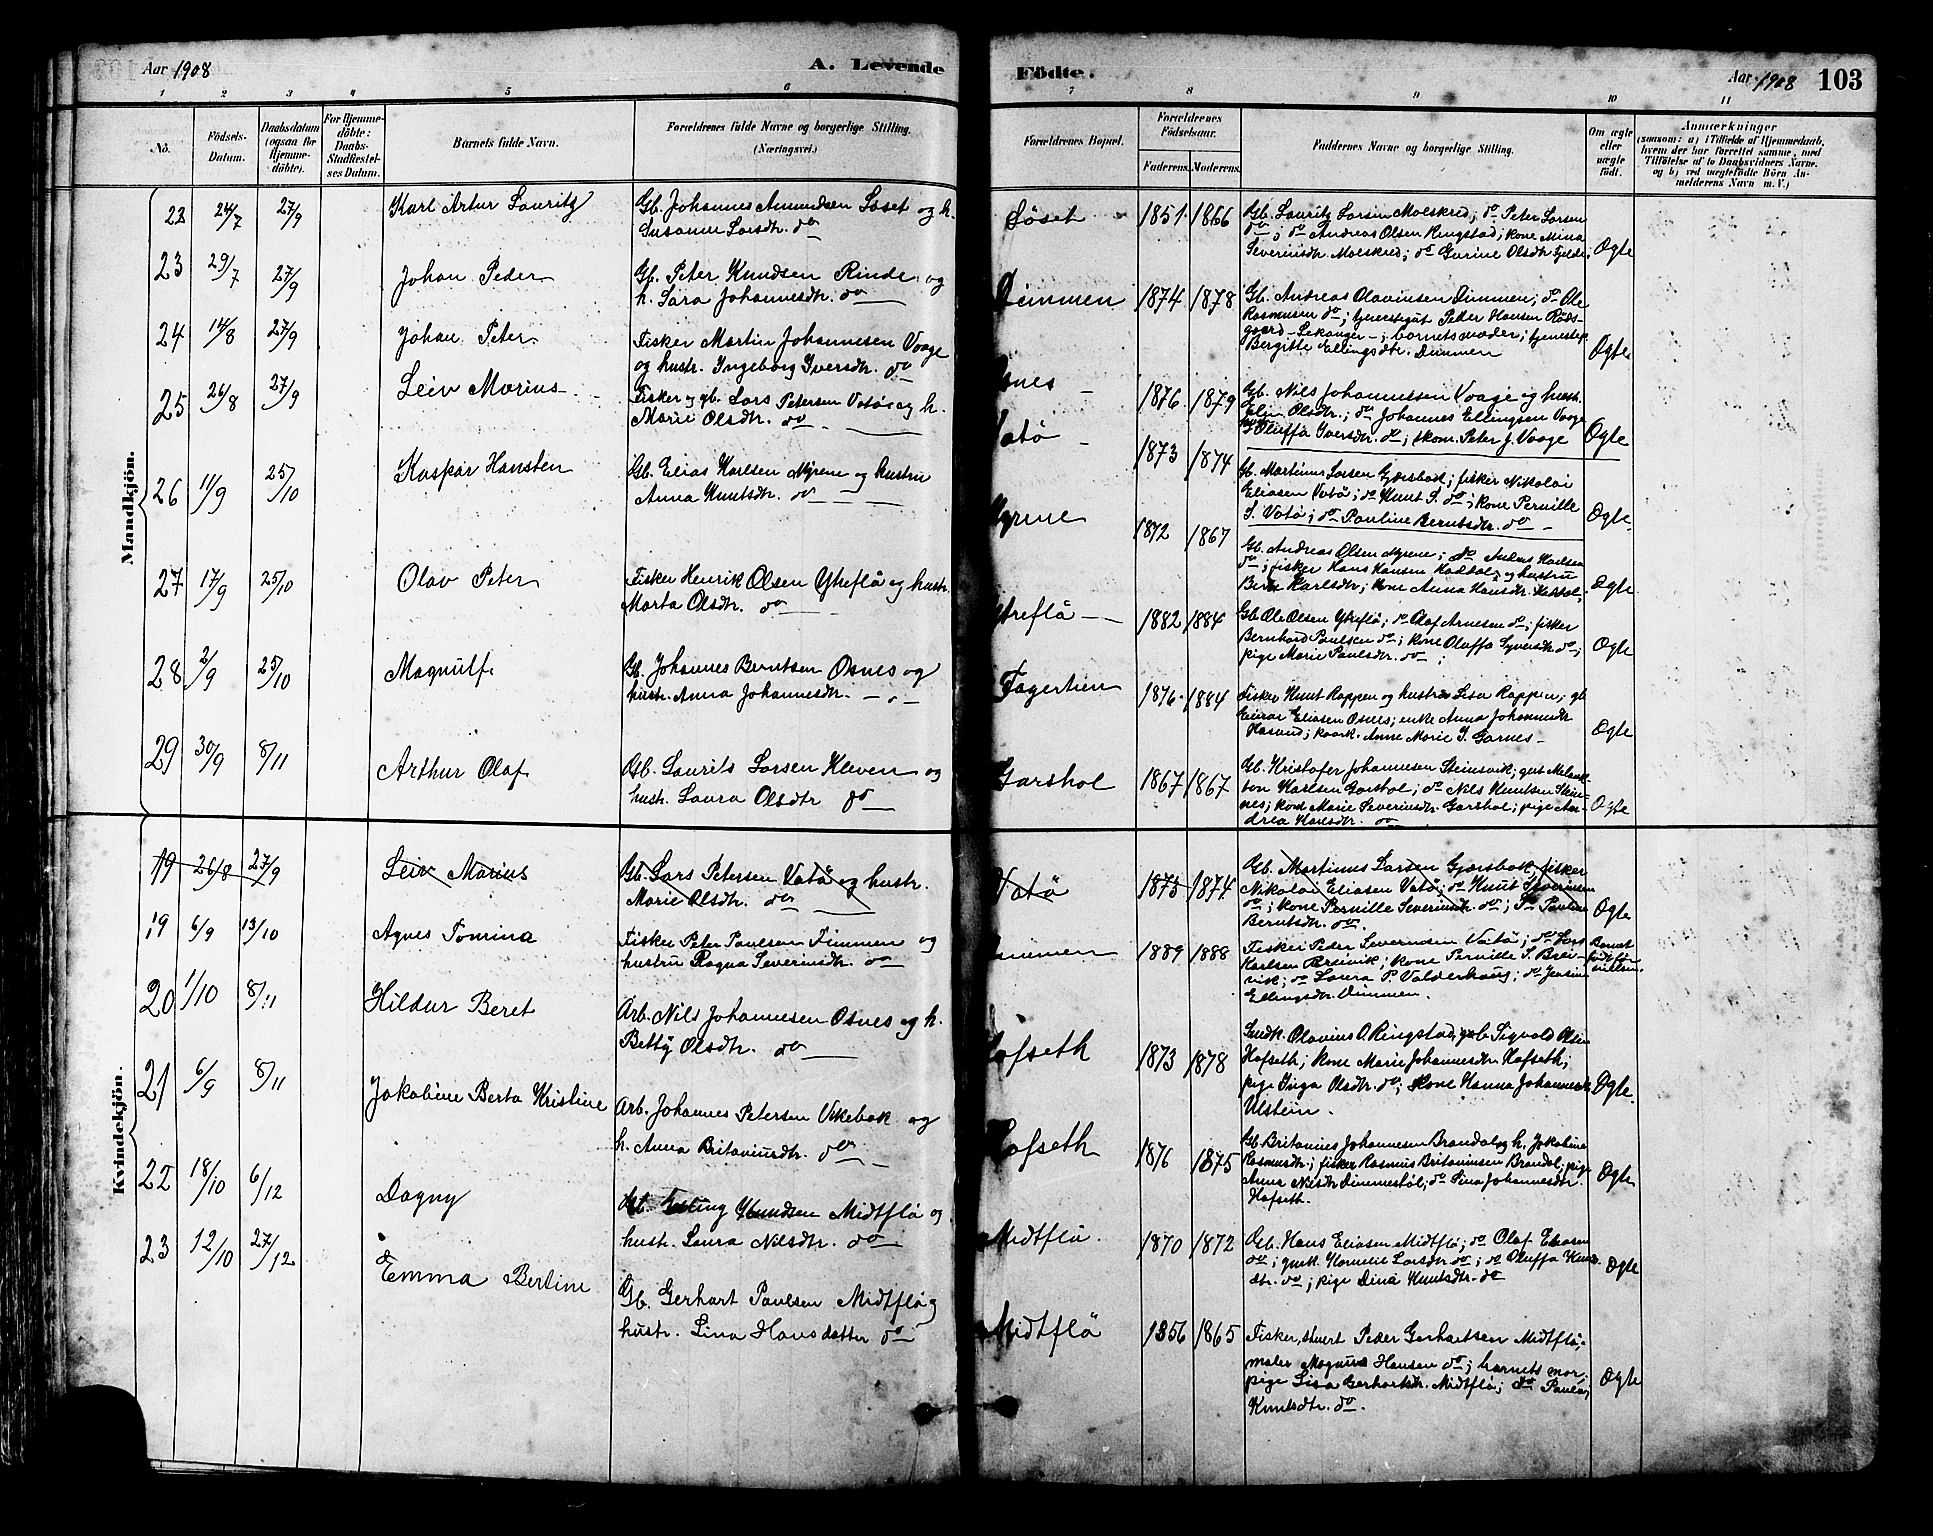 Aar 1908
A. Levende
Födte.
Aar 1908
103
1 2 3 4 5 6 7 8 9 10 11
No.
Födsels-
Datum.
Daabsdatum
(ogsaa for
Hjemme-
döbte).
For Hjemme-
döbte:
Daabs-
Stadfæstel-
ses Datum.
Barnets fulde Navn.
Forældrenes fulde Navne og borgerlige Stilling.
(Næringsvei.)
Forældrenes Bopæl.
Forældrenes
Födselsaar.
Faderens. Moderens.
Faddernes Navne og borgerlige Stilling.
Om ægte
eller
uægte
födt.
Anmærkninger
(saasom: a) i Tilfælde af Hjemmedaab,
hvem der har forrettet samme, med
Tilföielse af to Daabsvidners Navne.
og b) ved uægtefödte Börn An-
melderens Navn m. V.)
Mandkjön.
22 24/7 27/9 Karl Artur Lauritz
Gb. Johannes Amundsen Löset og h.
Susanne Larsdtr. do
Löset 1851. 1866
Gb. Lauritz Larsen Molskred; do Peter Larsen
do; do Andreas Olsen Ringstad; kone Mina
Severinsdtr. Molskred; do Gurine Olsdtr. Fjelde.
Ægte
23 29/7 27/9 Johan Peder
Gb. Peter Knudsen Rinde og
h. Sara Johannesdtr. do
Dimmen 1874 1878
Gb. Andreas Olavinsen Dimmen; do Ole
Rasmusen do; tjenestegut Peder Hansen Röds-
gaard - Lekanger -; barnets moder; tjenestep.
Bergitte Ellingsdtr. Dimmen
Ægte
24 14/8 27/9 Johan Peter
Fisker Martin Johannesen Vaage
og hustr. Ingeborg Iversdtr. do
Osnes 1876 1879
Gb. Nils Johannesen Vaage og hustr.
Elin Olsdtr.; do Johannes Ellingsen Vaage
Oluffa Iversdtr. do; skom. Peter J. Vaage
Ægte
25 26/8 27/9 Leiv Marius
Fisker og gb. Lars Petersen Vatö og h.
Marie Olsdtr. do
Vatö 1873 1874
Gb. Martinus Larsen Gjærsbak; fisker Nikolai
Eliasen Vatö; do Knut S. do; kone Pernille
S. Vatö; do Pauline Berntsdtr. do
Ægte.
26 11/9 25/10 Kaspar Hansten
Gb. Elias Karlsen Myrene og hustru
Anna Knutsdtr. do
Myrene 1872 1867
Gb. Andreas Olsen Myrene; do Karlsen
do; fisker Hans Hansen Haddal og hustru
Karlsdtr; kone Anna Hansdtr. Haddal.
Ægte
27 17/9 25/10 Olav Peter
Fisker Henrik Olsen Ytreflö og hustr.
Marta Olsdtr. do
Ytreflö 1882 1884
Gb. Ole Olsen Ytreflö; do Olaf Arnesen do; fisker
Bernhard Paulsen do; kone Oluffa Syversdtr do;
pige Marie Paulsdtr. do
Ægte
28 2/9 25/10 Magnulf.
Gb. Johannes Berntsen Osnes og
hustr. Anna Johannesdtr.
Fagertien 1876. 1884
Fisker Knut Rappen og hustru Lisa Rappen; gb
Einar Eliasen Osnes; enke Anna Johannesdtr
Hasund; Anne Marie J. Garnes
Ægte
29 30/9 8/11 Arthur Olaf
Gb. Laurits Larsen Kleven og
hustr. Laura Olsdtr do
Garshol 1867 1867
Gb. Kristofer Johannesen Steinsvik; gut Melank-
ton Karlsen Garshol; do Nils Knutsen Stein-
nes; kone Marie Severinsdtr. Garshol; pige An-
drea Karlsdtr. do
Ægte
Kvindekjön.
19 26/8 27/9 Leiv Marius
Gb. Lars Petersen Vatö og hustr.
Marie Olsdtr. do
Vatö 1873 1874
Gb. Martinus Larsen Gjærsbak, fisker
Nikolai Eliasen Vatö; do Knut Severinsen
do; kone Pernille Severinsdtr do; do Pauline
Berntsdtr. do.
Ægte
19 6/9 13/10 Agnes Tomina
Fisker Peter Paulsen Dimmen og
hustru Ragna Severinsdtr. do
Dimmen 1889 1888
Fisker Peder Severinsen Vatö; do Lars
Karlsen Breivik; kone Pernille S. Brei-
vik; do Laura P. Valderhaug; do Jensine
Ellingsdtr. Dimmen.
Barnet
födt för
vielsen.
20 1/10 8/11 Hildur Beret
Arb. Nils Johannesen Osnes og h.
Betty Olsdtr. do
Hofseth 1873 1878
Snedk. Olavius O. Ringstad, gb. Sigvald Olsen
Hofseth; kone Marie Johannesdtr Hofseth;
pige Inga Olsdtr. do; kone Hanna Johannesdtr
Ulstein.
Ægte.
21 6/9 8/11 Jakobine Berta Kristine
Arb. Johannes Petersen Vikebak og
h. Anna Britaniusdtr. do
Hofseth 1876 1875
Gb. Britanius Johannesen Brandal og h. Jakobine
Rasmusdtr.; fisker Rasmus Britaniusen Brandal; pige
Anna Nilsdtr Dimmestöl; do Lina Johannesdtr
Hofseth.
Ægte
22 18/10 6/12 Dagny
Gb. Elling Knudsen Midtflö og
hustr. Laura Nilsdtr. do
Midtflö. 1870 1872
Gb. Hans Eliasen Midtflö; do Olaf Eliasen
do; Kornelie Larsdtr do; do Oluffa Knuds-
dtr. do; pige Dina Knutsdtr. do
Ægte
23 12/10 27/12 Emma Bertine
Gb. Gerhart Paulsen Midtflö og
hustr. Lina Hansdatter do
Midtflö 1856 1865
Fisker, Peder Gerhartsen Midtflö;
maler Magnus Hansen do; barnets mor;
pige Lisa Gerhartsdtr. Midtflö; do Paula
Knutsdtr. do.
Ægte